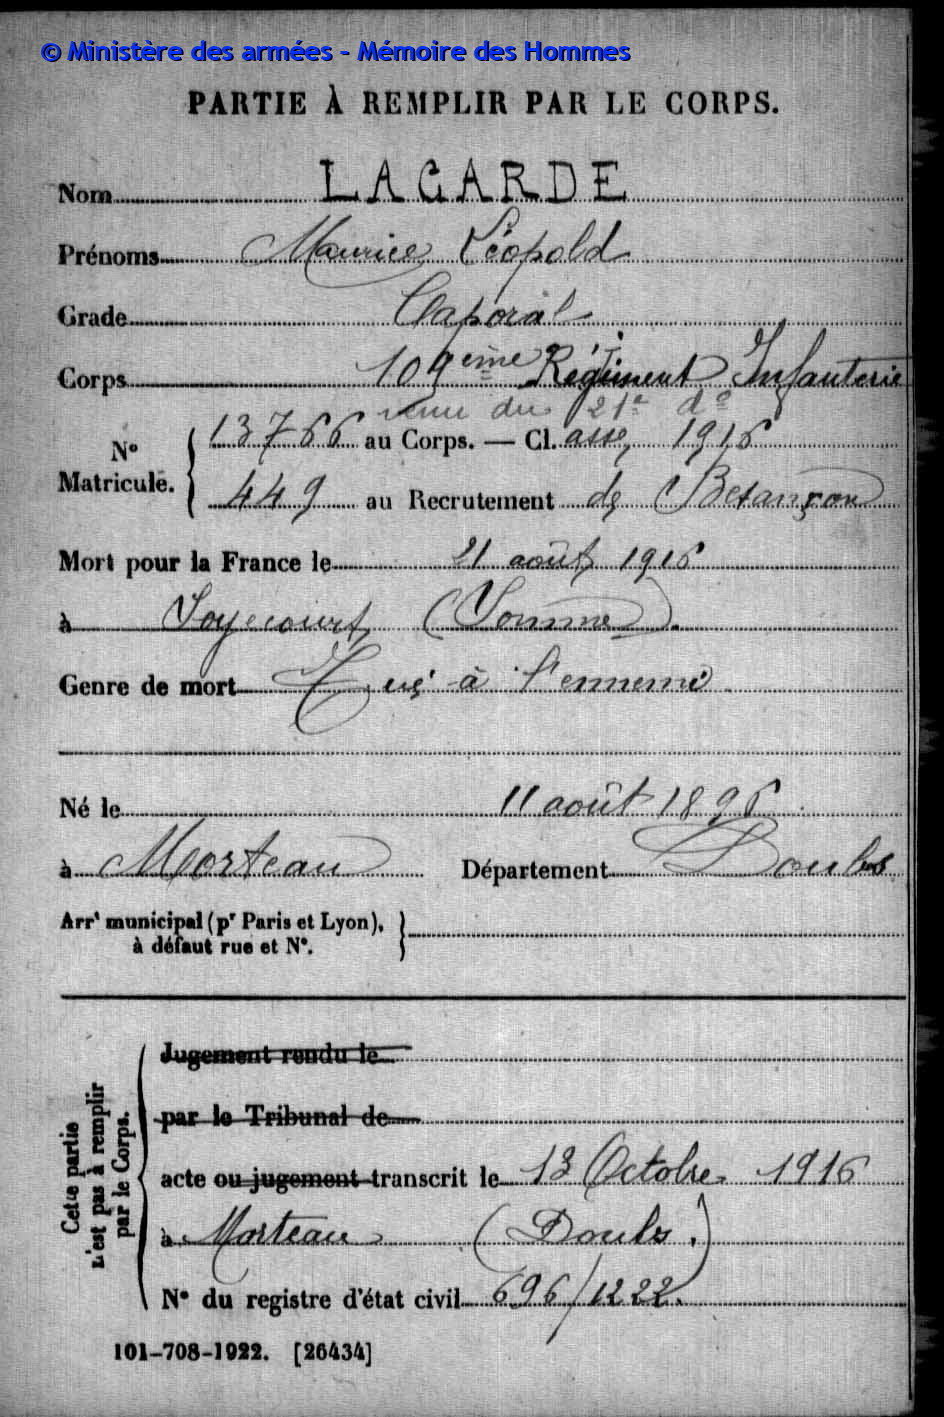 © Ministère des armées - Mémoire des Hommes
PARTIE À REMPLIR PAR LE CORPS.
Nom LAGARDE
Prénoms Maurice Léopold
Grade Caporal
Corps 109ème Régiment Infanterie
venu du 21e do
No Matricule. 13766 au Corps. — Cl. asse 1916
449 au Recrutement de Besançon
Mort pour la France le 21 août 1916
à Soyecourt (Somme).
Genre de mort Tué à l'ennemi
Né le 11 août 1896
à Morteau Département Doubs
Arrt municipal (pr Paris et Lyon),
à défaut rue et No.
Cette partie n'est pas à remplir par le Corps.
Jugement rendu le
par le Tribunal de
acte ou jugement transcrit le 13 Octobre 1916
à Morteau (Doubs.)
No du registre d'état civil 696/1222.
101-708-1922. [26434]